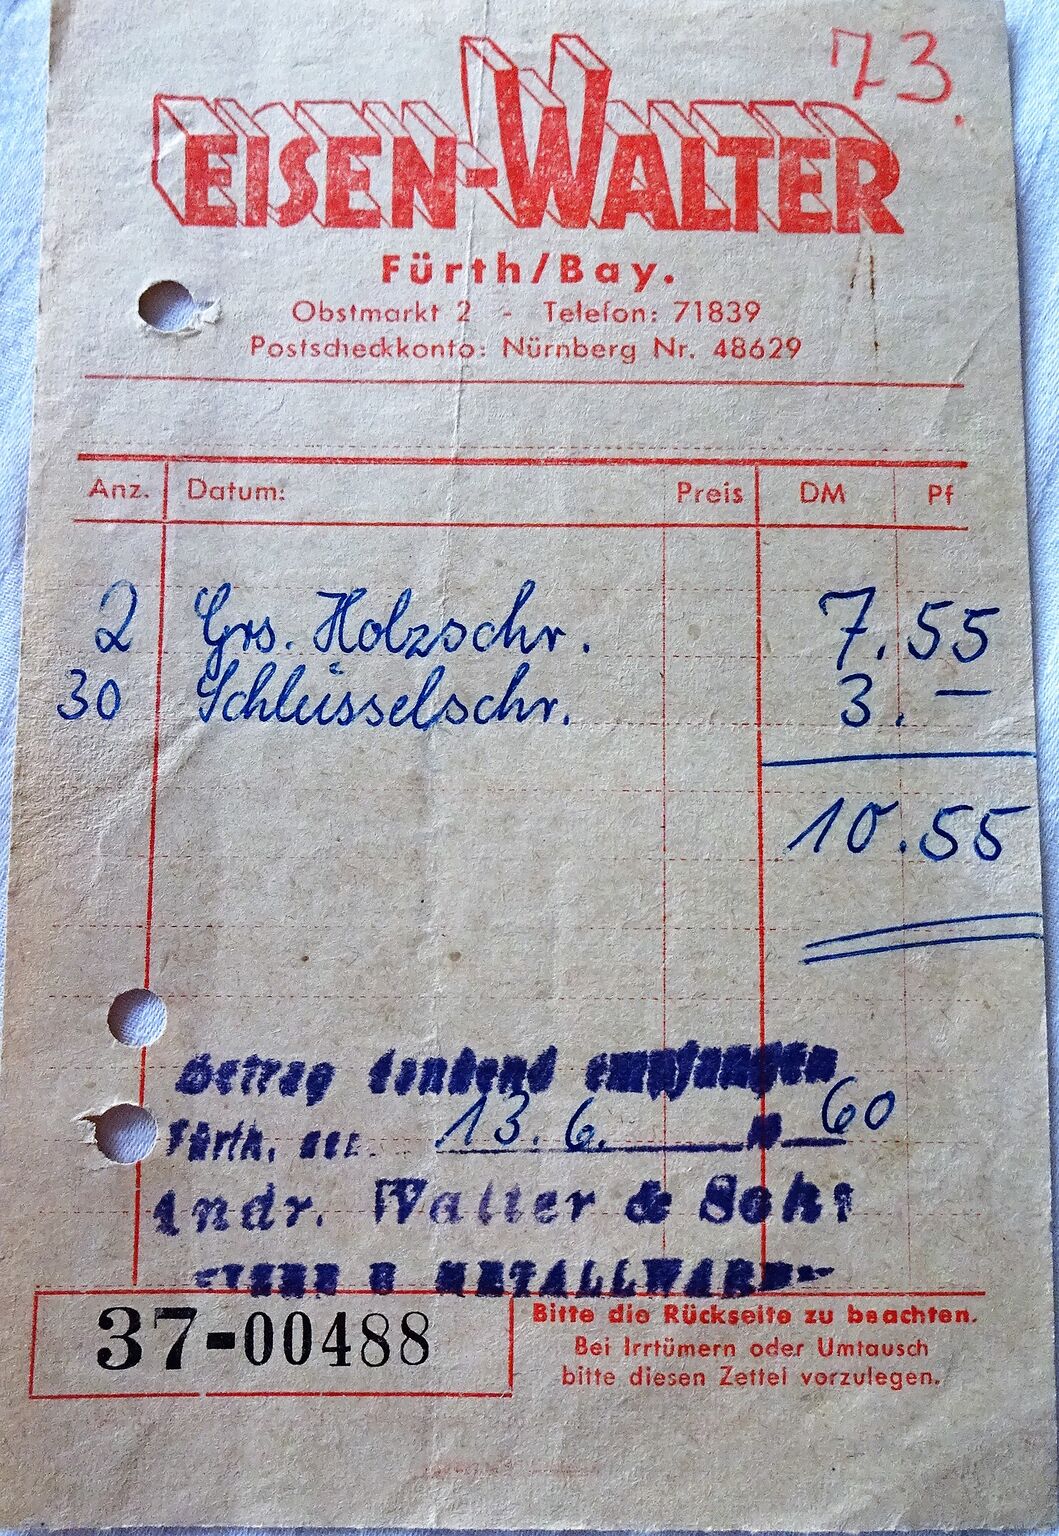 73.
EISEN-WALTER
Fürth/Bay.
Obstmarkt 2 - Telefon: 71839
Postscheckkonto: Nürnberg Nr. 48629
Anz. Datum: Preis DM Pf
2 Grs. Holzschr. 7.55
30 Schlüsselschr. 3. —
10.55
Betrag dankend empfangen
Fürth, den 13. 6. 19 60
Andr. Walter & Sohn
EISEN U METALLWAREN
37-00488
Bitte die Rückseite zu beachten.
Bei Irrtümern oder Umtausch
bitte diesen Zettel vorzulegen.